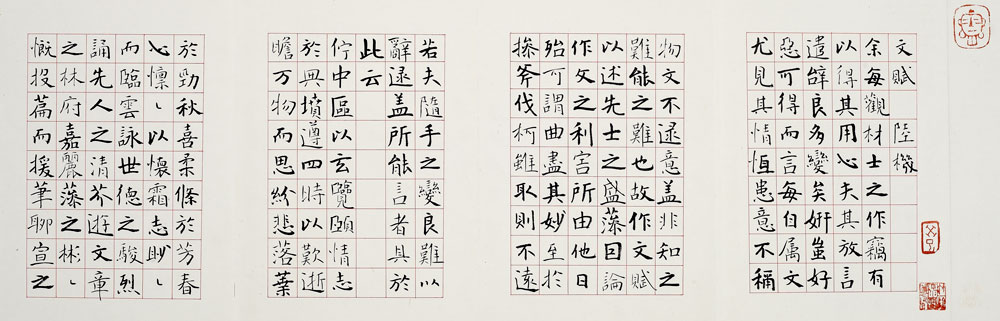 文賦 陸機
余每觀材士之作竊有
以得其用心夫其放言
遣辭良多變矣妍蚩好
惡可得而言每自属文
尤見其情恒患意不稱
物文不逮意盖非知之
難能之難也故作文賦
以述先士之盛藻因論
作文之利害所由他日
殆可謂曲盡其妙至於
操斧伐柯雖取則不遠
若夫隨手之變良難以
辭逮盖所能言者具於
此云
佇中區以玄覽頤情志
於典墳遵四時以歎逝
瞻万物而思紛悲落葉
於勁秋喜柔條於芳春
心懍〻以懷霜志眇〻
而臨雲詠世德之駿烈
誦先人之清芬遊文章
之林府嘉麗藻之彬〻
慨投篇而援筆聊宣之